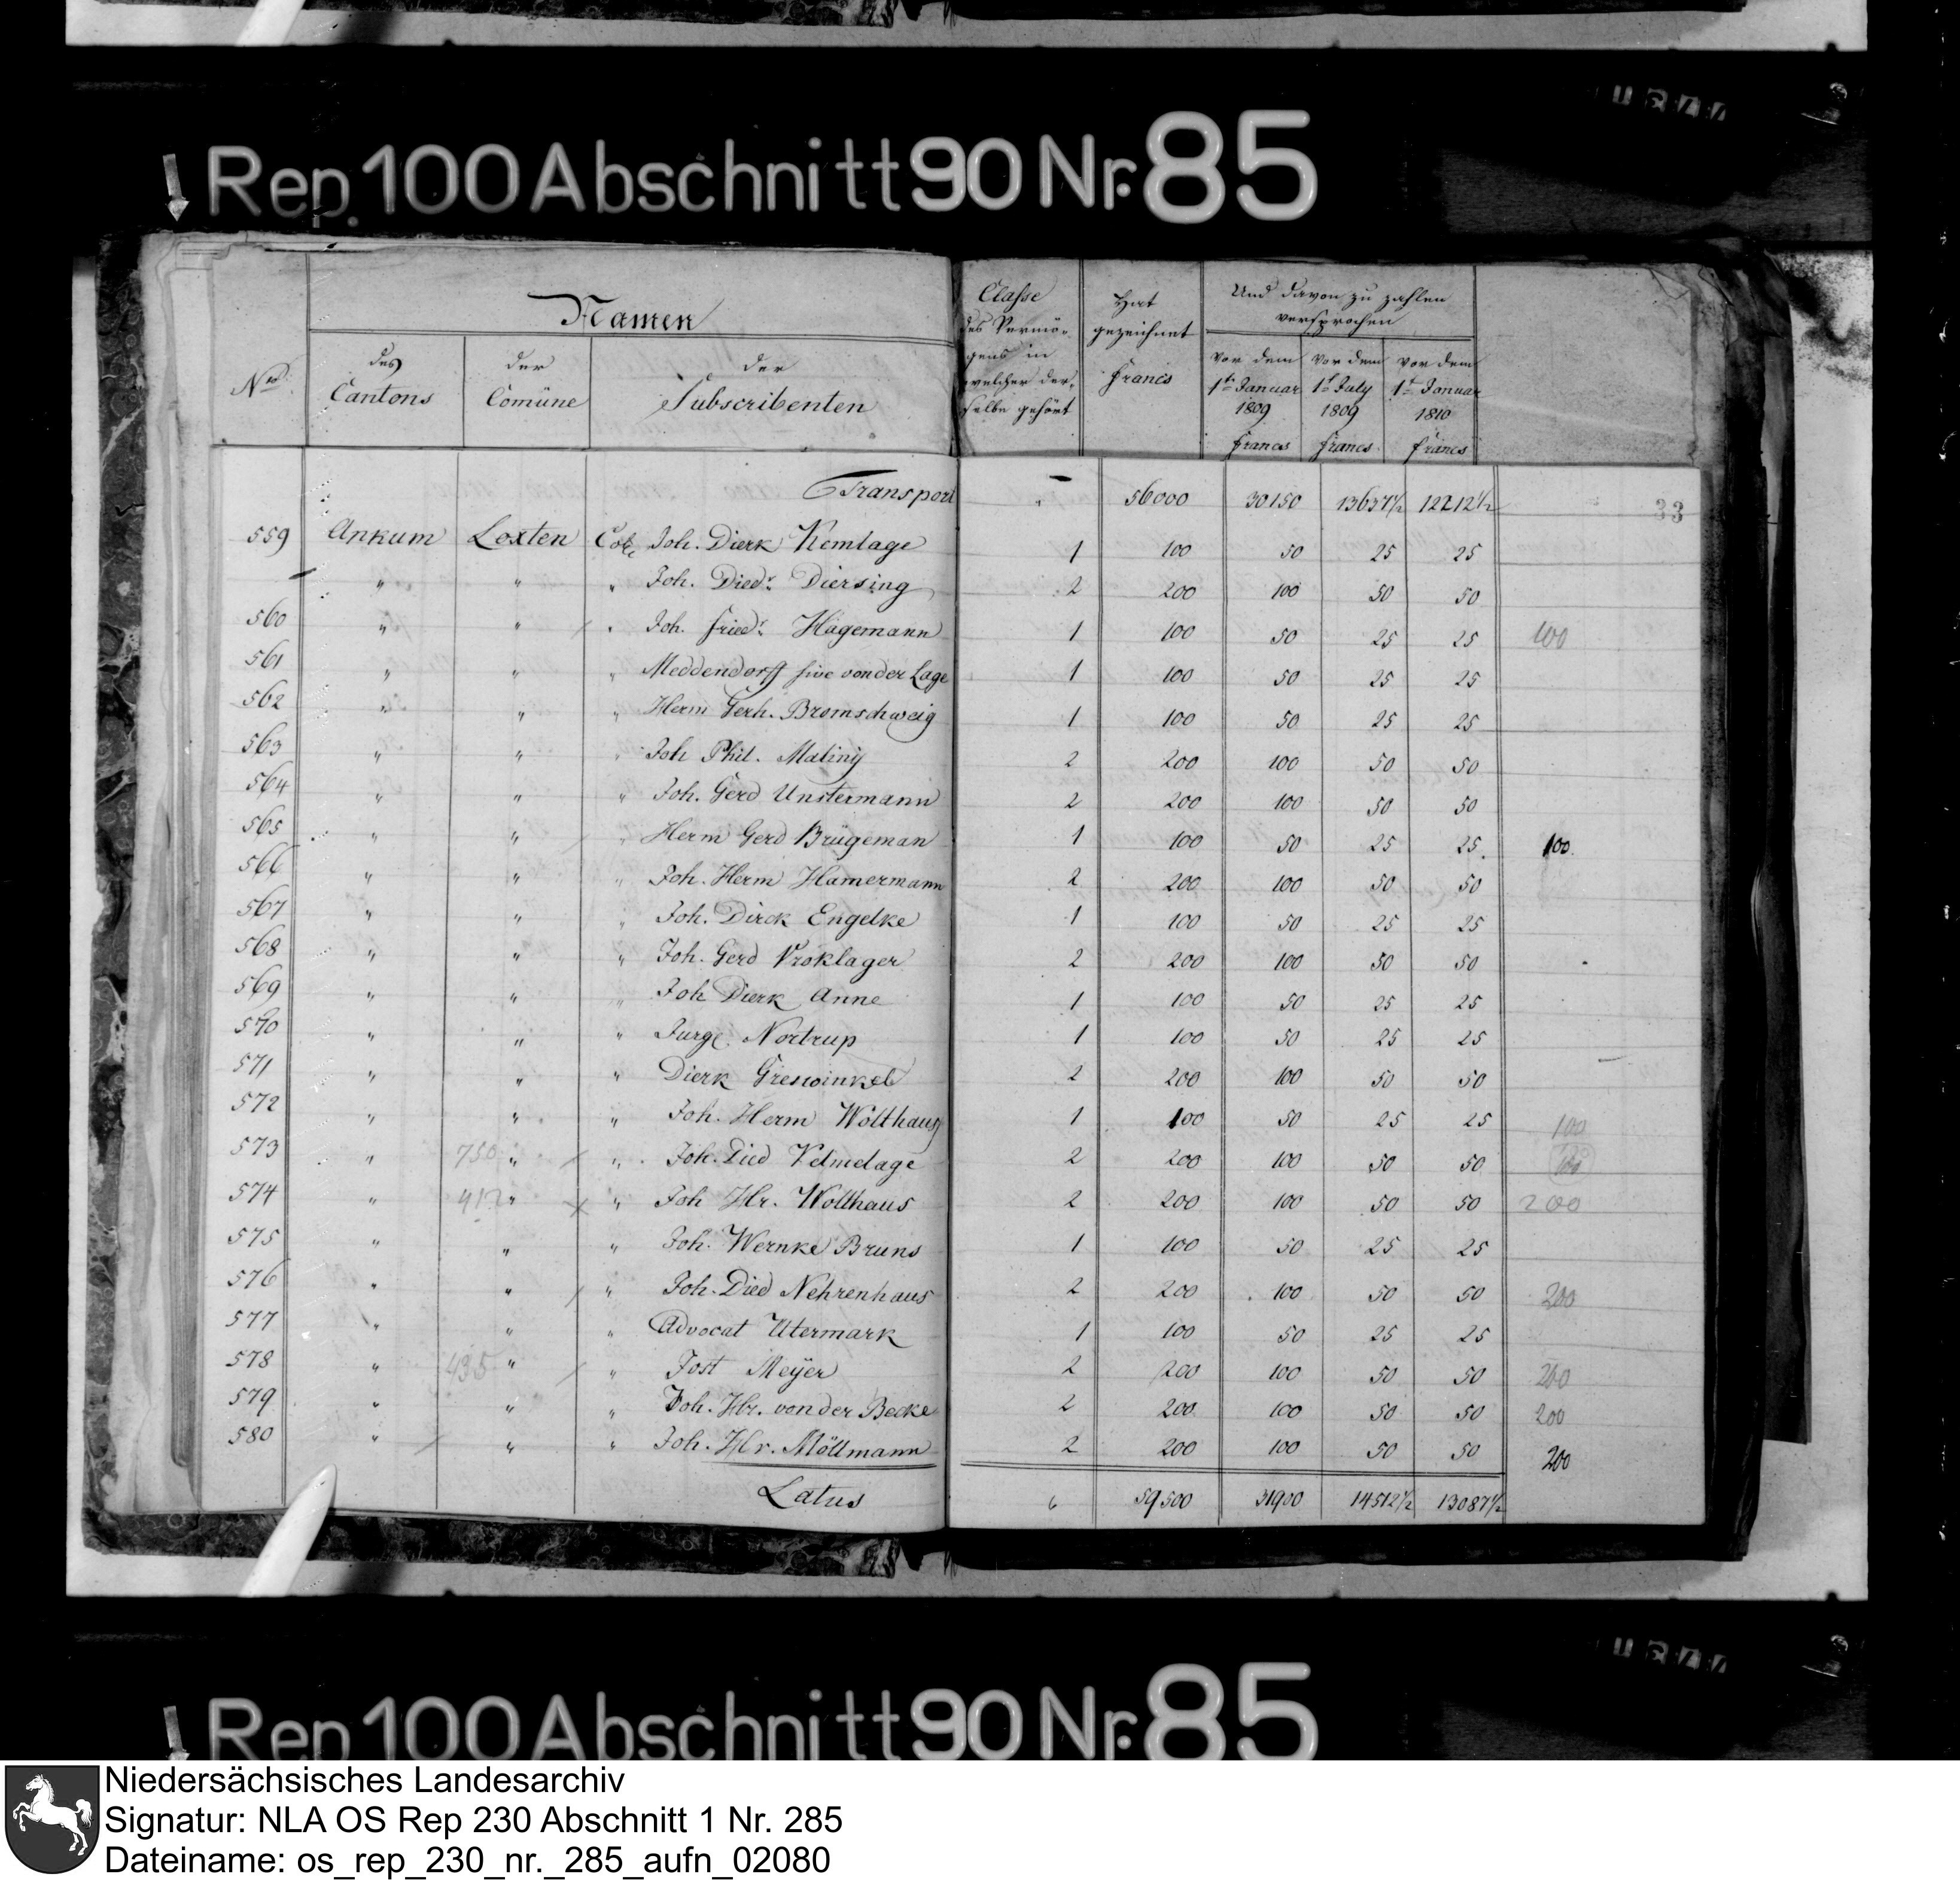 Rep. 100 Abschnitt 90 Nr. 85
Namen
No
des Cantons
der Comüne
der Subscribenten
Classe des Vermögens in welcher derselbe gehört
Hat gezeichnet Francs
Und davon zu zahlen versprochen
vor dem 1ten Januar 1809 Francs
vor dem 1t July 1809 Francs
vor dem 1t Januar 1810 Francs
33
Transport " 56000 30150 13637½ 12212½
559 Ankum Loxten Col. Joh. Dierk Kemlage 1 100 50 25 25
" " " Joh. Diedr. Diersing 2 200 100 50 50
560 " " " Joh. Friedr. Hagemann 1 100 50 25 25 100
561 " " " Meddendorff sive von der Lage 1 100 50 25 25
562 " " " Herm Gerh. Bromschweig 1 100 50 25 25
563 " " " Joh Phil. Maliny 2 200 100 50 50
564 " " " Joh. Gerd Unstermann 2 200 100 50 50
565 " " " Herm Gerd Brügeman 1 100 50 25 25. 100.
566 " " " Joh. Herm Hamermann 2 200 100 50 50
567 " " " Joh. Dirck Engelke 1 100 50 25 25
568 " " " Joh. Gerd Vroklager 2 200 100 50 50
569 " " " Joh Dierk Anne 1 100 50 25 25
570 " " " Jurge Nortrup 1 100 50 25 25
571 " " " Dierk Greswinkel 2 200 100 50 50
572 " " " Joh. Herm Wölthaus 1 100 50 25 25 100
573 " 750 " " Joh. Died Velmelage 2 200 100 50 50 100
574 " 412 " " Joh Hr. Wolthaus 2 200 100 50 50 200
575 " " " Joh. Wernke Bruns 1 100 50 25 25
576 " " " Joh. Died Nehrenhaus 2 200 100 50 50 200
577 " " " Advocat Utermark 1 100 50 25 25
578 " 435 " " Jost Meÿer 2 200 100 50 50 200
579 " " " Joh. Hr. von der Becke 2 200 100 50 50 200
580 " " " Joh. Hr. Möllmann 2 200 100 50 50 200
Latus 59500 31900 14512½ 13087½
Rep 100 Abschnitt 90 Nr. 85
Niedersächsisches Landesarchiv
Signatur: NLA OS Rep 230 Abschnitt 1 Nr. 285
Dateiname: os_rep_230_nr._285_aufn_02080